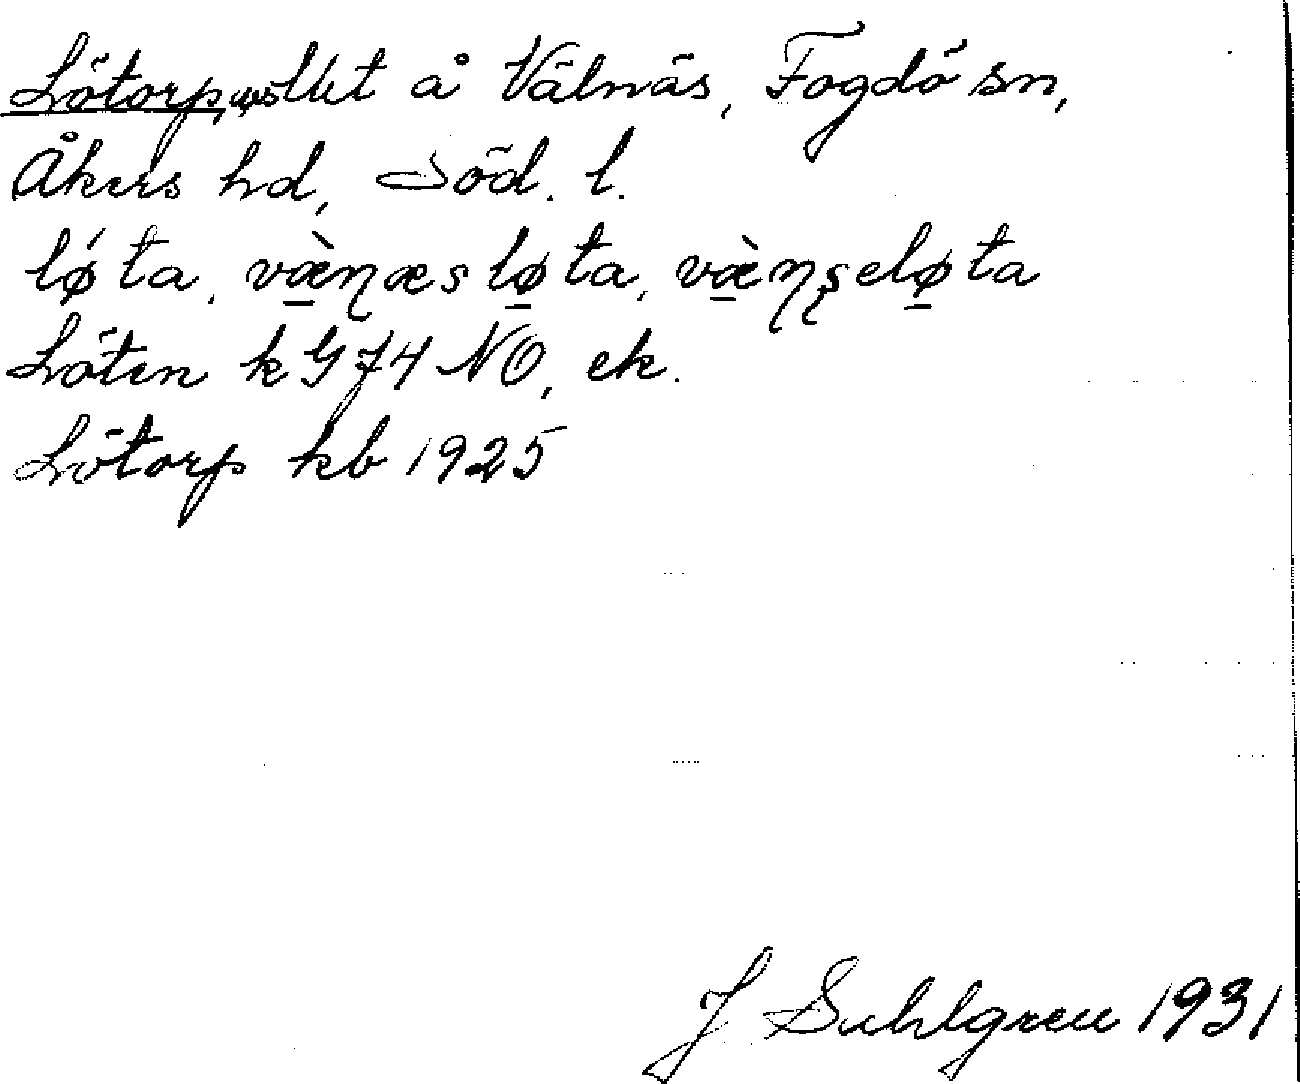 Lötorp, utslät å Välnäs, Fogdö sn,
Åkers hd, Söd. l.
lǿta, væ̀ɳæsløta, væ̀ɳʂeløta
Löten k G74 NO, ek.
Lötorp kb 1925
J Sahlgren 1931